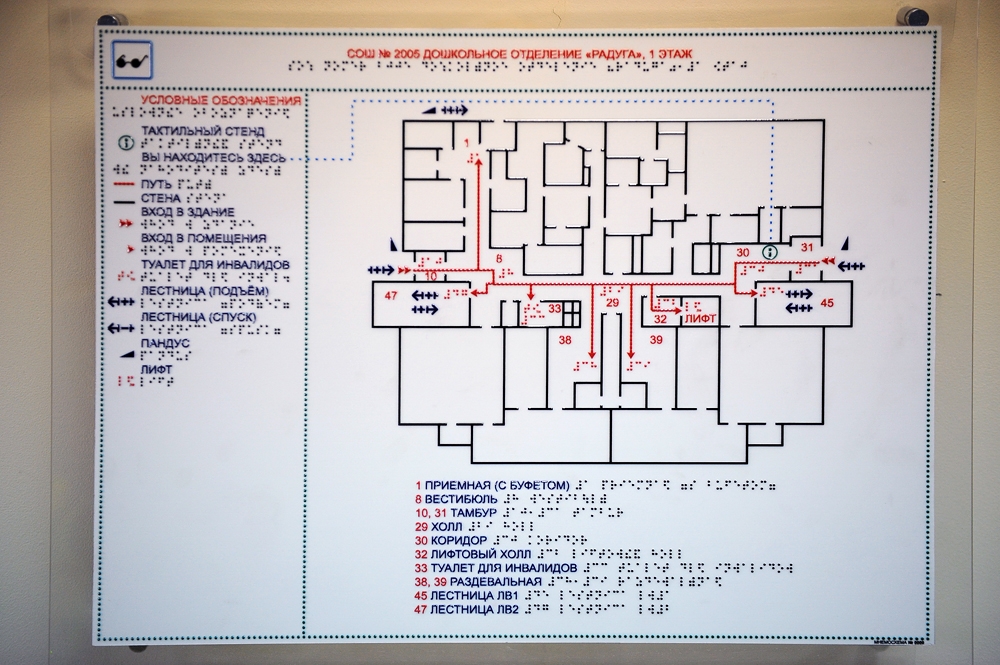 СОШ № 2005 ДОШКОЛЬНОЕ ОТДЕЛЕНИЕ «РАДУГА», 1 ЭТАЖ
УСЛОВНЫЕ ОБОЗНАЧЕНИЯ
ТАКТИЛЬНЫЙ СТЕНД
ВЫ НАХОДИТЕСЬ ЗДЕСЬ
ПУТЬ
СТЕНА
ВХОД В ЗДАНИЕ
ВХОД В ПОМЕЩЕНИЯ
ТУАЛЕТ ДЛЯ ИНВАЛИДОВ
ЛЕСТНИЦА (ПОДЪЁМ)
ЛЕСТНИЦА (СПУСК)
ПАНДУС
ЛИФТ
1
8
30
31
10
47
33
29
32
ЛИФТ
45
38
39
1 ПРИЕМНАЯ (С БУФЕТОМ)
8 ВЕСТИБЮЛЬ
10, 31 ТАМБУР
29 ХОЛЛ
30 КОРИДОР
32 ЛИФТОВЫЙ ХОЛЛ
33 ТУАЛЕТ ДЛЯ ИНВАЛИДОВ
38, 39 РАЗДЕВАЛЬНАЯ
45 ЛЕСТНИЦА ЛВ1
47 ЛЕСТНИЦА ЛВ2